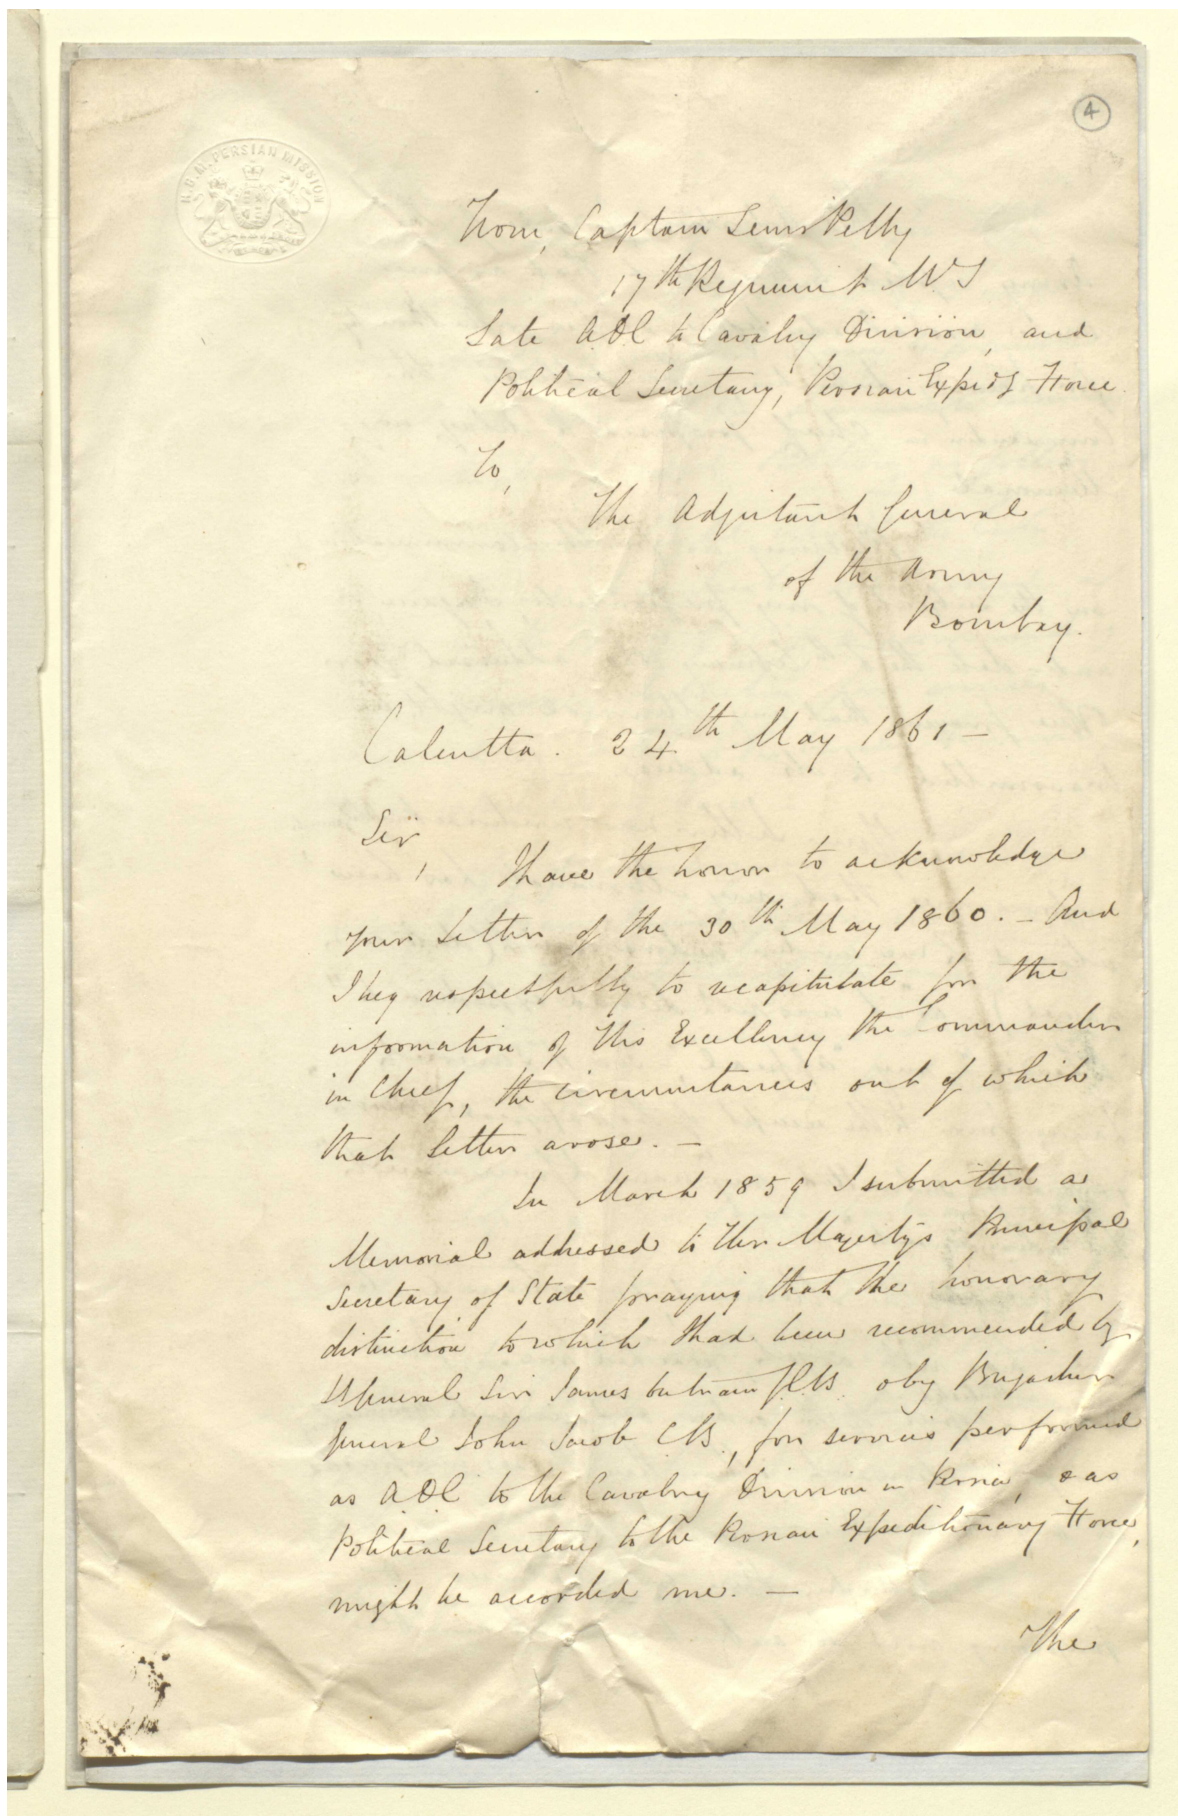 4
H.B.M. PERSIAN MISSION
From, Captain Lewis Pelly
17th Regiment NI
Late ADC to Cavalry Division, and
Political Secretary, Persian Expedy Force.
To,
The Adjutant General
of the Army
Bombay.
Calcutta. 24th May 1861 —
Sir,
I have the honor to acknowledge
your Letter of the 30th May 1860. — And
I beg respectfully to recapitulate for the
information of His Excellency the Commander
in Chief, the circumstances out of which
that letter arose. —
In March 1859 I submitted a
Memorial addressed to Her Majestys Principal
Secretary of State praying that the honorary
distinction to which I had been recommended by
Lt General Sir James Outram GCB. & by Brigadier
General John Jacob CB., for services performed
as ADC to the Cavalry Division in Persia, & as
Political Secretary to the Persian Expeditionary Force,
might be accorded me. —
The